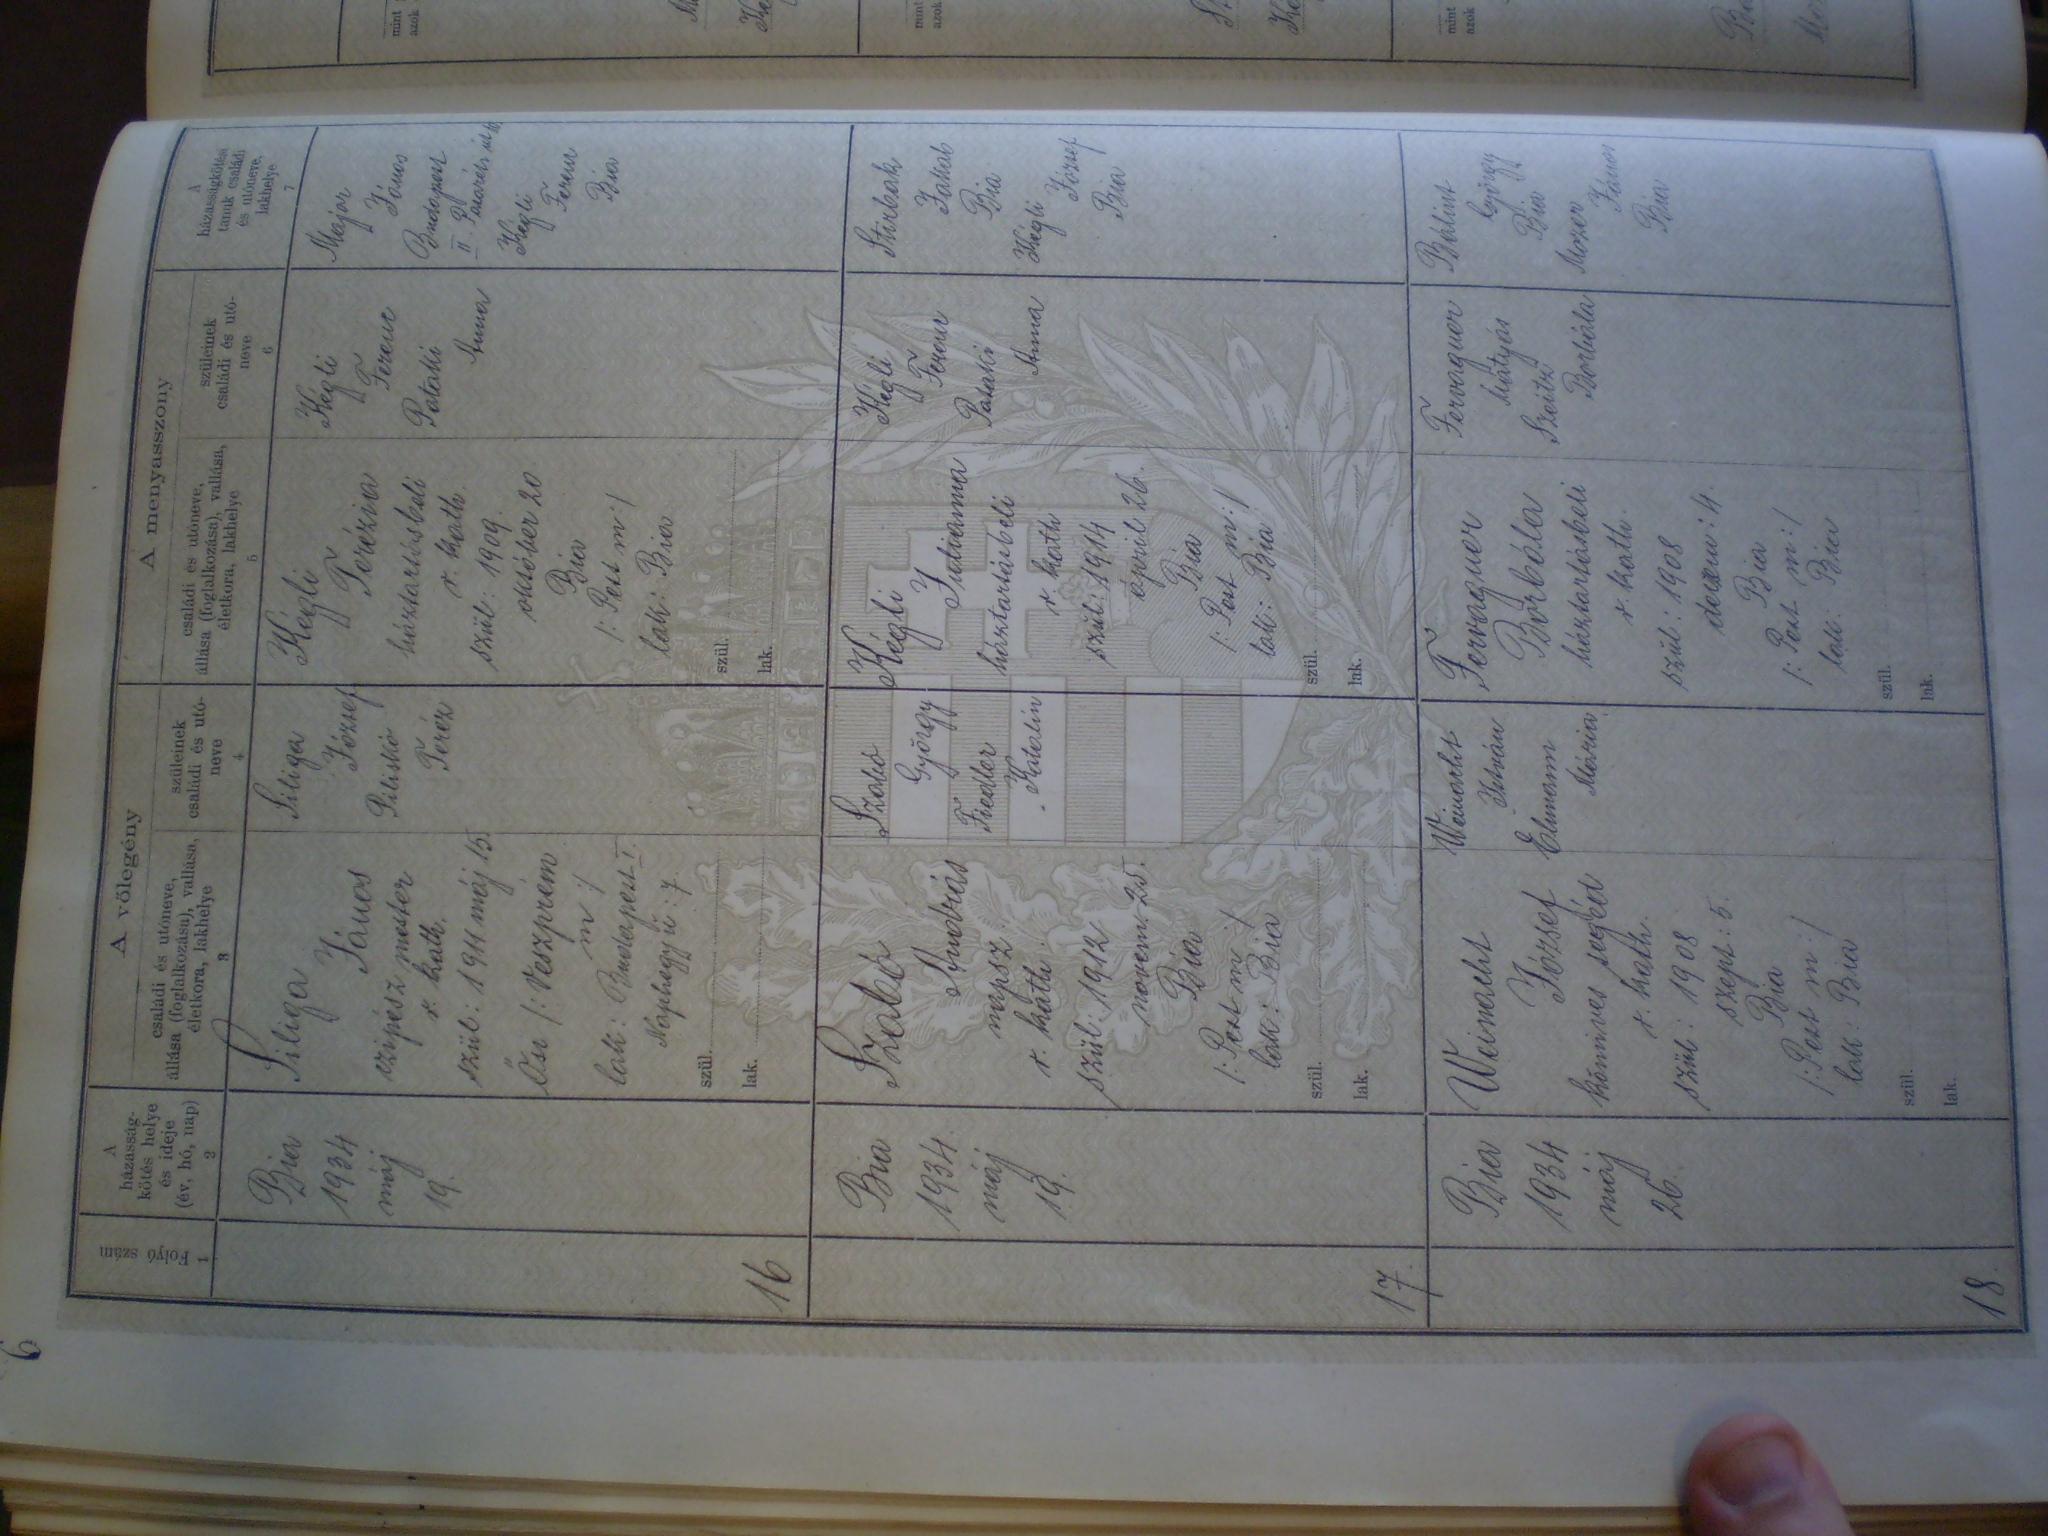 6
Folyó szám
1
A
házasság-
kötés helye
és ideje
(év, hó, nap)
2
A vőlegény
családi és utóneve,
állása (foglalkozása), vallása,
életkora, lakhelye
3
szüleinek
családi és utó-
neve
4
A menyasszony
családi és utóneve,
állása (foglalkozása), vallása,
életkora, lakhelye
5
szüleinek
családi és utó-
neve
6
A
házasságkötési
tanuk családi
és utóneve,
lakhelye
7
16
Bia
1934
máj
19.
Siliga
János
czipész mester
r. kath.
szül: 1911 máj 15
Ősi /: Veszprém
m :/
lak: Budapest I.
Naphegyi u: 7.
szül.
lak.
Siliga
József
Piliskó
Teréz
Kégli
Terézia
háztartásbeli
r. kath.
szül: 1909.
október 20
Bia
/: Pest m: /
lak: Bia
szül.
lak.
Kégli
Ferenc
Pataki
Anna
Major
János
Budapest
II. Pasaréti út
Kégli
Ferenc
Bia
17.
Bia
1934.
máj
19.
Szabó
András
napsz.
r. kath.
szül: 1912
novem 25.
Bia
/: Pest m: /
lak: Bia
szül.
lak.
Szabó
György
Fiedler
Katalin
Kégli
Zsuzsanna
háztartásbeli
r. kath
szül: 1914
április 26.
Bia
/: Pest m: /
lak: Bia
szül.
lak.
Kégli
Ferenc
Pataki
Anna
Stirbak
Jakab
Bia
Kégli
József
Bia
18.
Bia
1934
máj
26.
Weinacht
József
kőmives segéd
r. kath.
szül: 1908
szept: 5.
Bia
/: Pest m: /
lak: Bia
szül.
lak.
Weinacht
István
Elmann
Mária
Fervagner
Borbála
háztartásbeli
r. kath.
szül: 1908
decem: 4.
Bia
/: Pest m: /
lak: Bia
szül.
lak.
Fervagner
Mátyás
Szeitz
Borbála
Bálint
György
Bia
Mozer
János
Bia
mint
azok
mint
azok
mint
azok